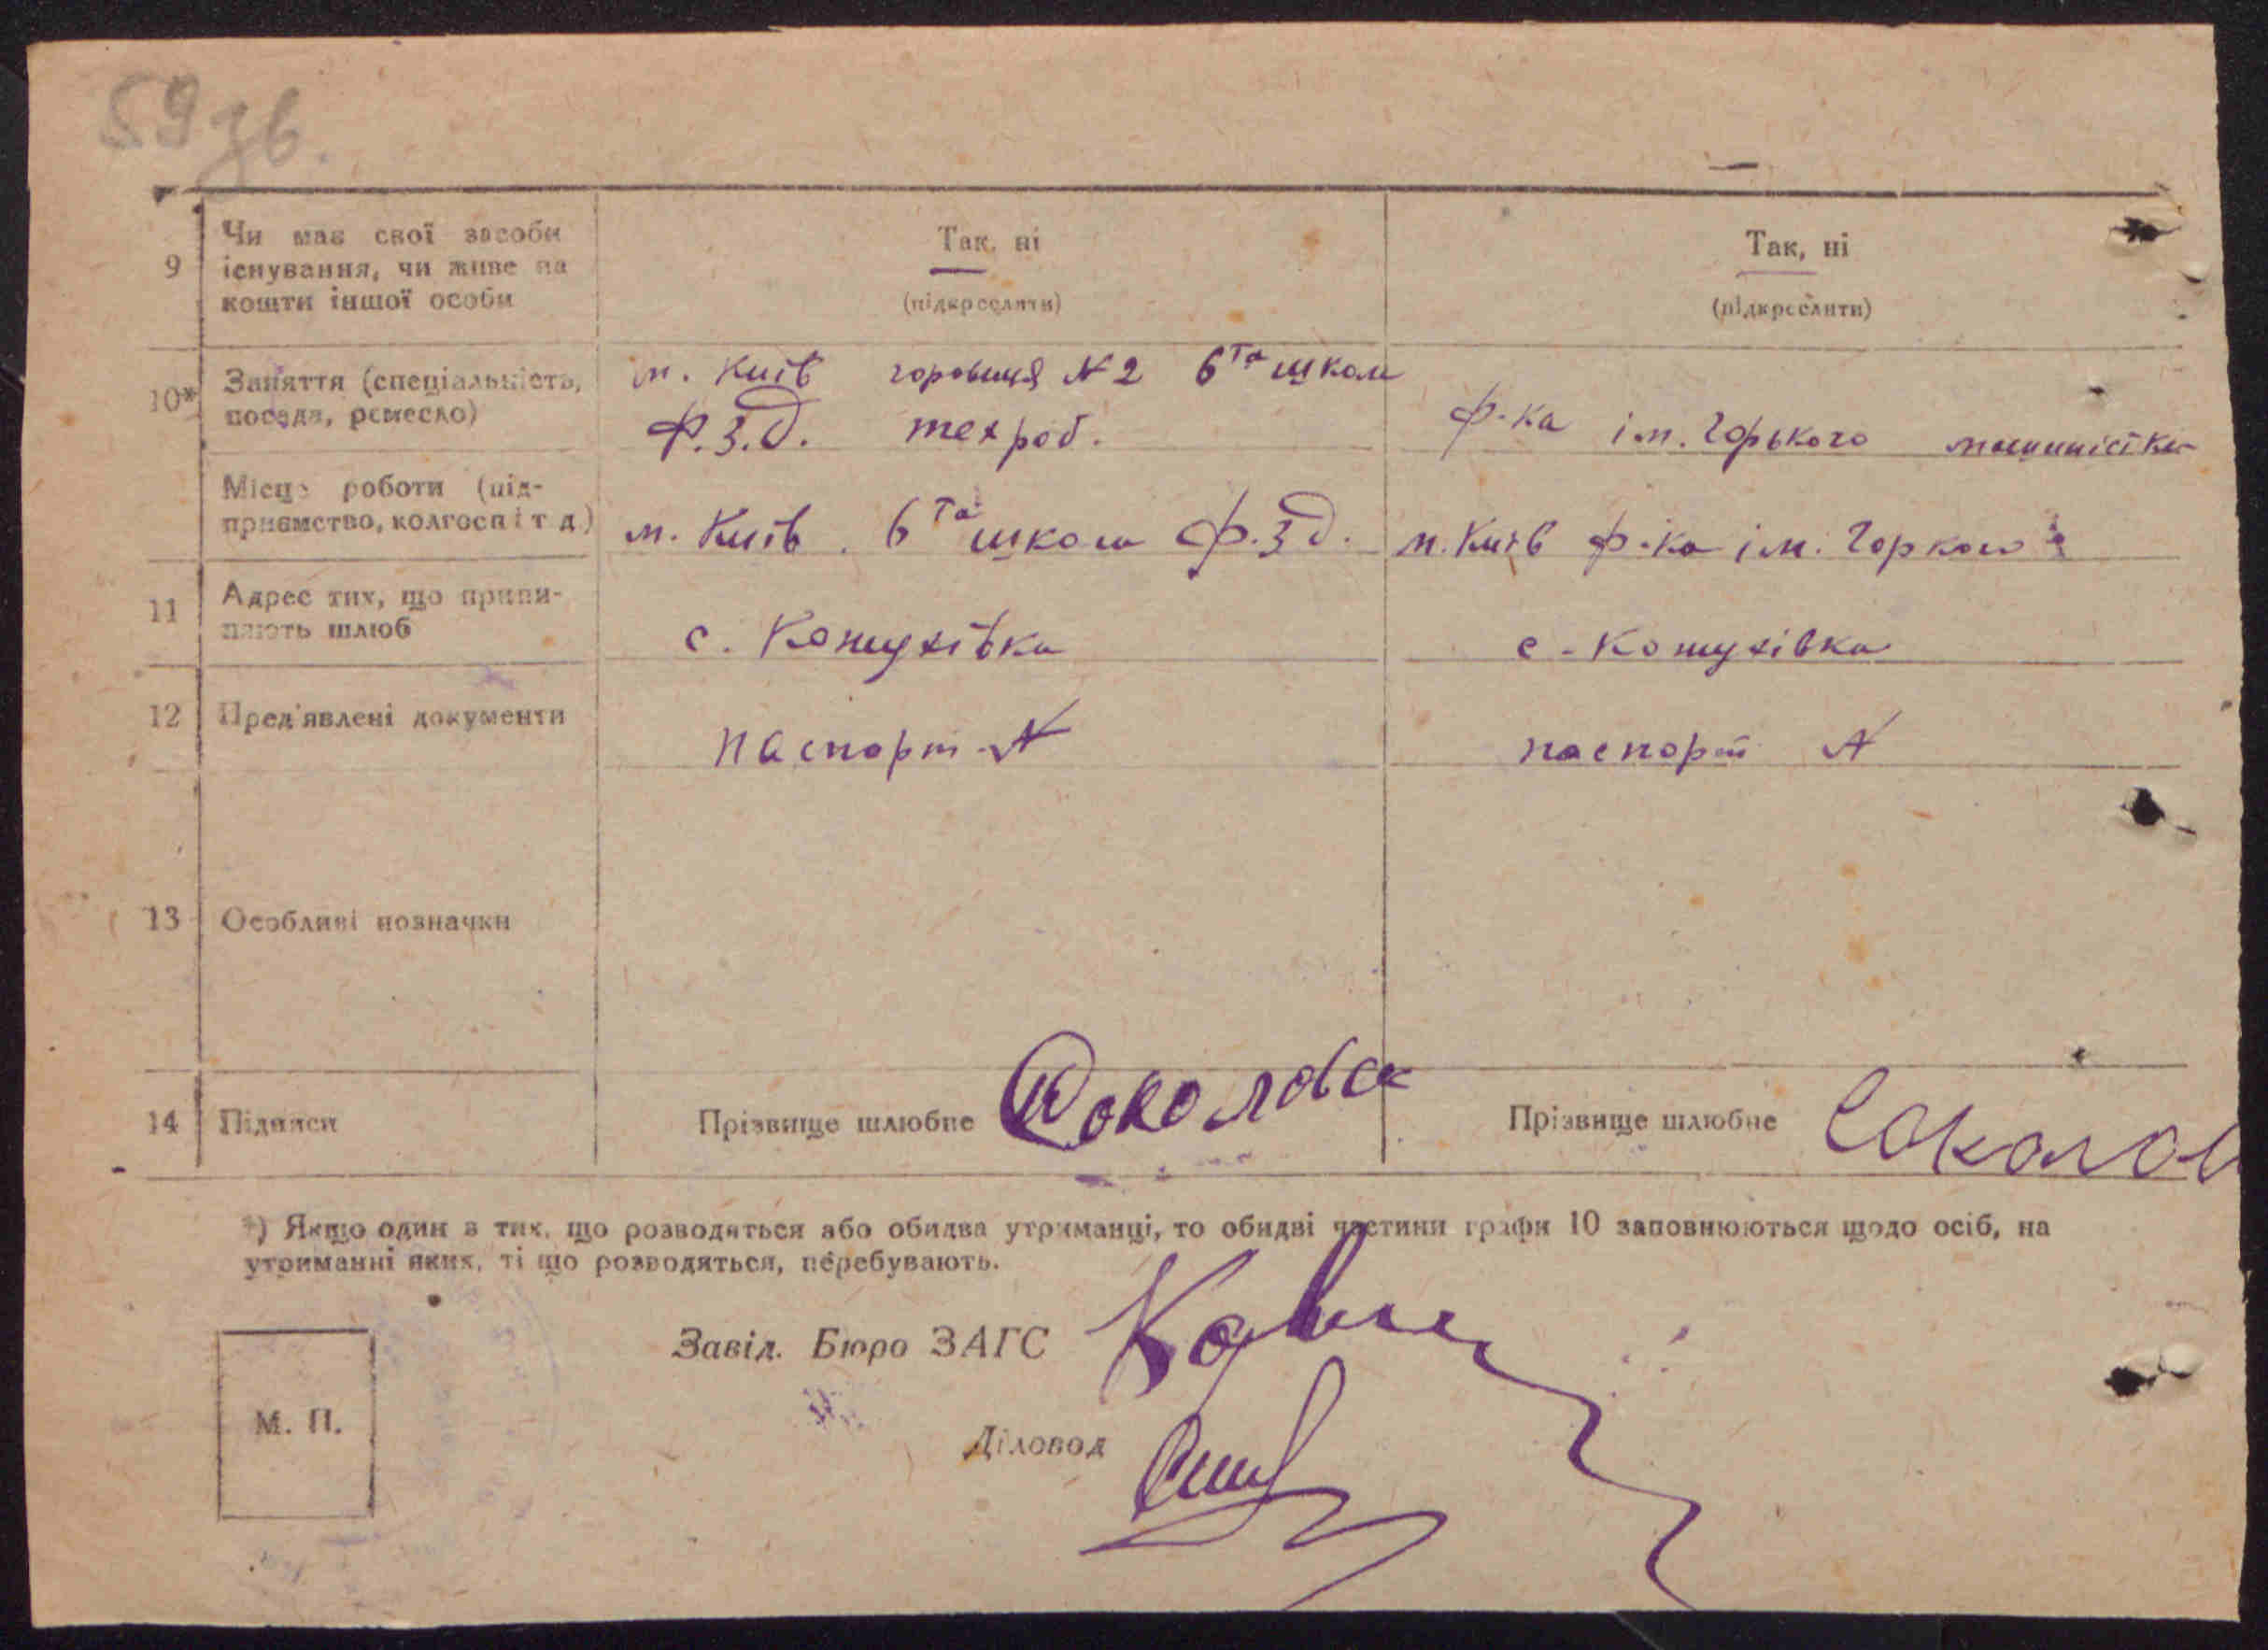 59 зв.
9 Чи має свої засоби існування, чи живе на кошти іншої особи
Так, ні
(підкреслити)
Так, ні
(підкреслити)
10* Заняття (спеціальність, посада, ремесло)
м. Київ №2 6та школа
Ф.З.д. тех роб.
ф-ка ім. Горького машиністка
Місце роботи (підприємство, колгосп і т д.)
м. Київ. 6та школа Ф.З.д.
м. Київ ф-ка ім. Горкого
11 Адрес тих, що припиняють шлюб
с. Кожухівка
с. Кожухівка
12 Пред'явлені документи
паспорт №
паспорт №
13 Особливі позначки
14 Підписи
Прізвище шлюбне
Прізвище шлюбне
*) Якщо один з тих, що розводяться або обидва утриманці, то обидві частини графи 10 заповнюються щодо осіб, на
утриманні яких, ті що розводяться, перебувають.
Завід. Бюро ЗАГС
М. П.
Діловод